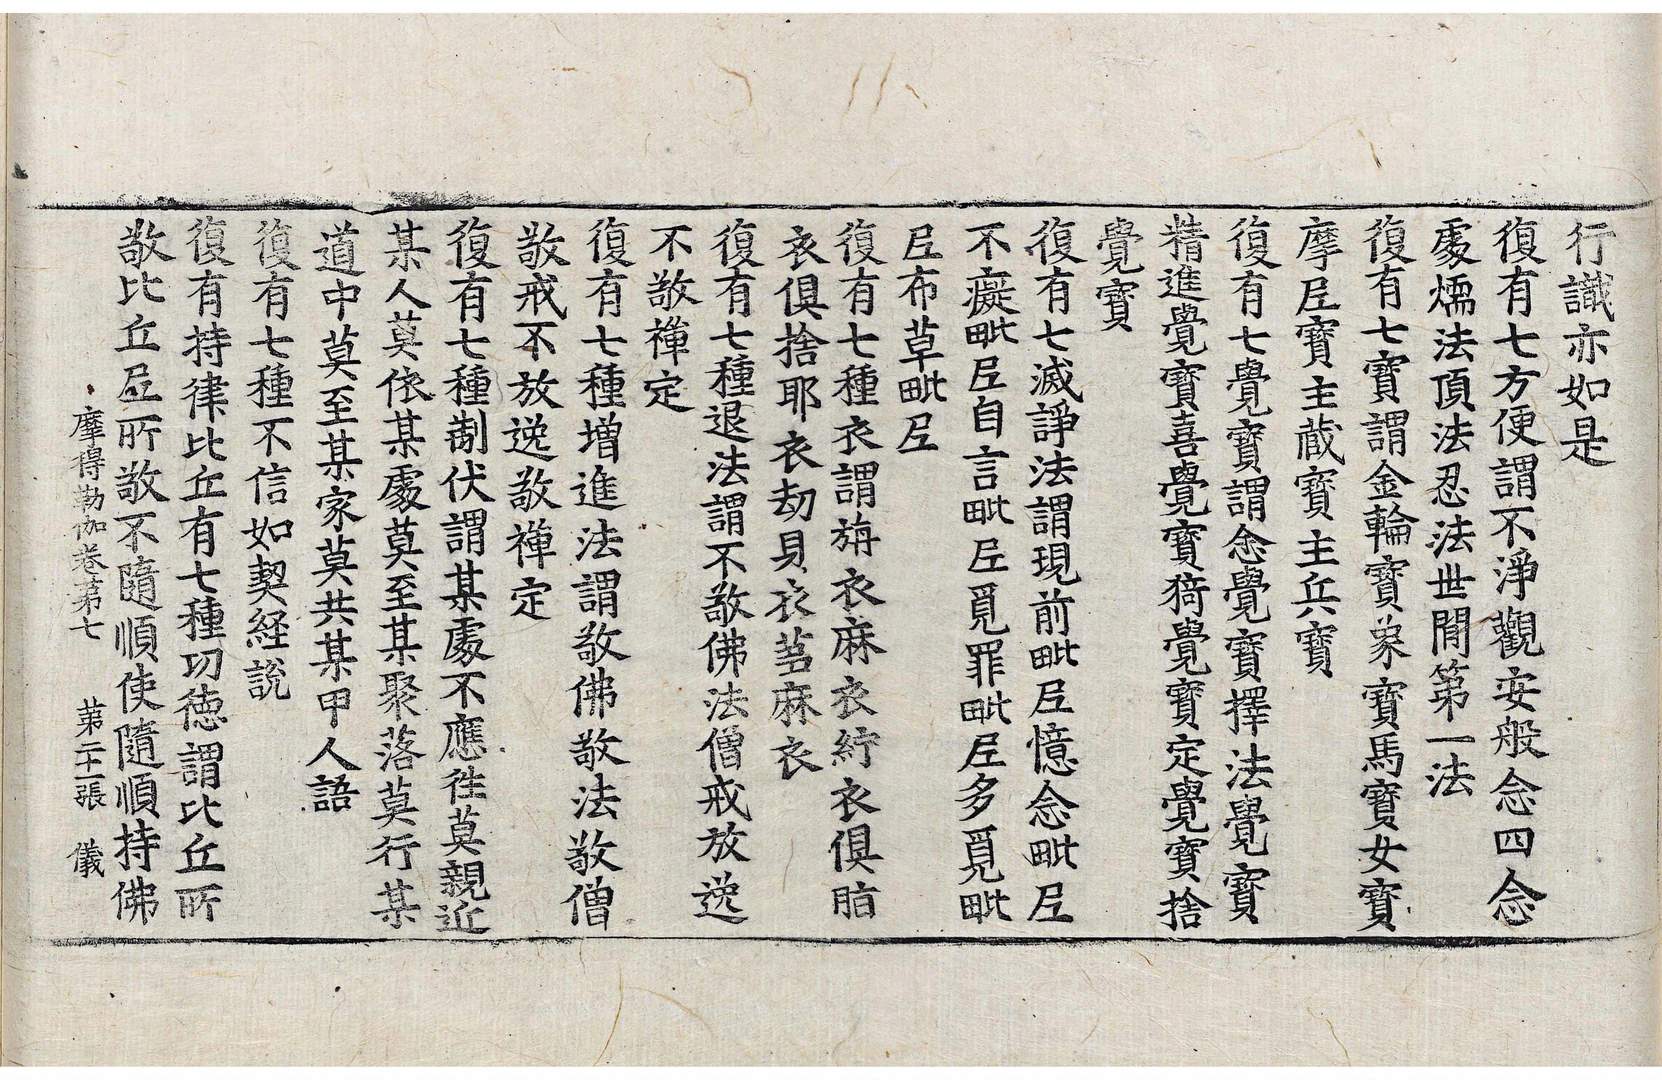 行識亦如是
復有七方便謂不淨觀安般念四念
處煗法頂法忍法世間第一法
復有七寶謂金輪寶象寶馬寶女寶
摩尼寶主藏寶主兵寶
復有七覺寶謂念覺寶擇法覺寶
精進覺寶喜覺寶猗覺寶定覺寶捨
覺寶
復有七滅諍法謂現前毗尼憶念毗尼
不癡毗尼自言毗尼覓罪毗尼多覓毗
尼布草毗尼
復有七種衣謂旃衣麻衣紵衣俱脂
衣俱捨耶衣劫貝衣芻麻衣
復有七種退法謂不敬佛法僧戒放逸
不敬禪定
復有七種增進法謂敬佛敬法敬僧
敬戒不放逸敬禪定
復有七種制伏謂某處不應往莫親近
某人莫依某處莫至某聚落莫行某
道中莫至某家莫共某甲人語
復有七種不信如契経說
復有持律比丘有七種功德謂比丘所
敬比丘尼所敬不隨順使隨順持佛
摩得勒伽卷第七 第二十一張 儀